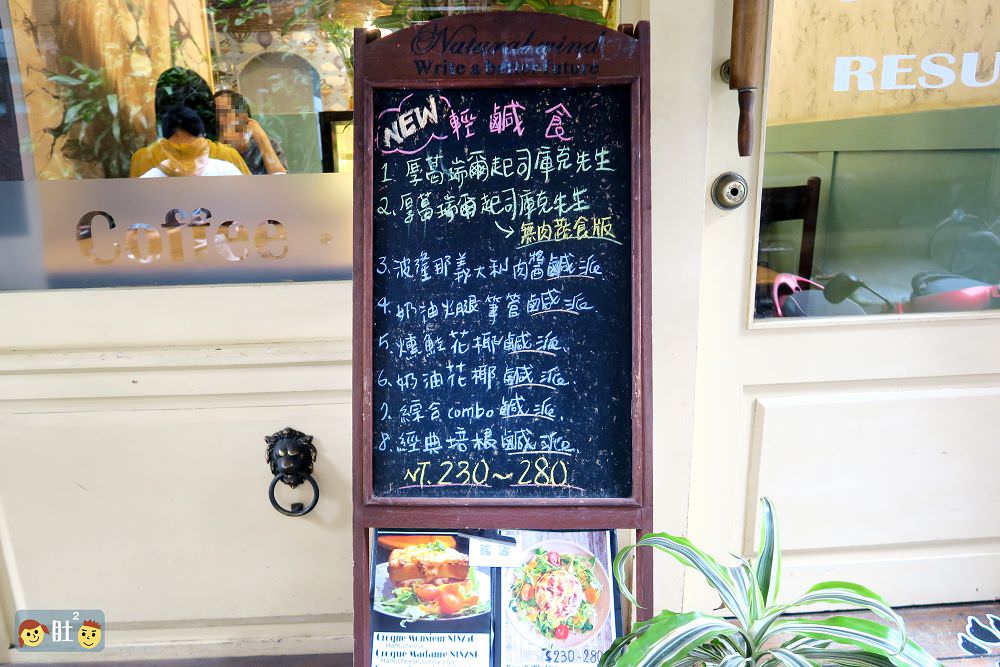 Naturalwind
Write a better future
NEW 輕鹹食
1. 厚葛瑞爾起司庫克先生
2. 厚葛瑞爾起司庫克先生
無肉蔬食版
3. 波隆那義大利肉醬鹹派
4. 奶油火腿筆管鹹派
5. 燻鮭花椰鹹派
6. 奶油花椰鹹派
7. 綜合combo鹹派
8. 經典培根鹹派
NT. 230~280
Coffee
RESU
Croque Monsieur NT$250
Croque Madame NT$280
$230-280
肚2